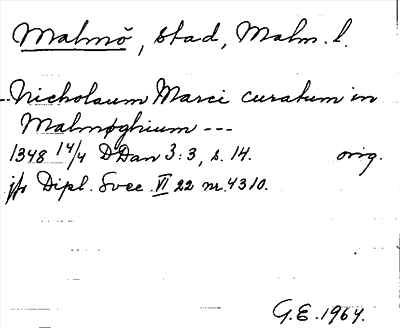 Malmö, stad, Malm. l.
Nicholaum Marci curatum in
Malmøghium ---
1348 14/4 DDan 3:3, s. 14. orig.
jfr Dipl. Svec. VI 22 nr 4310.
G.E. 1964.